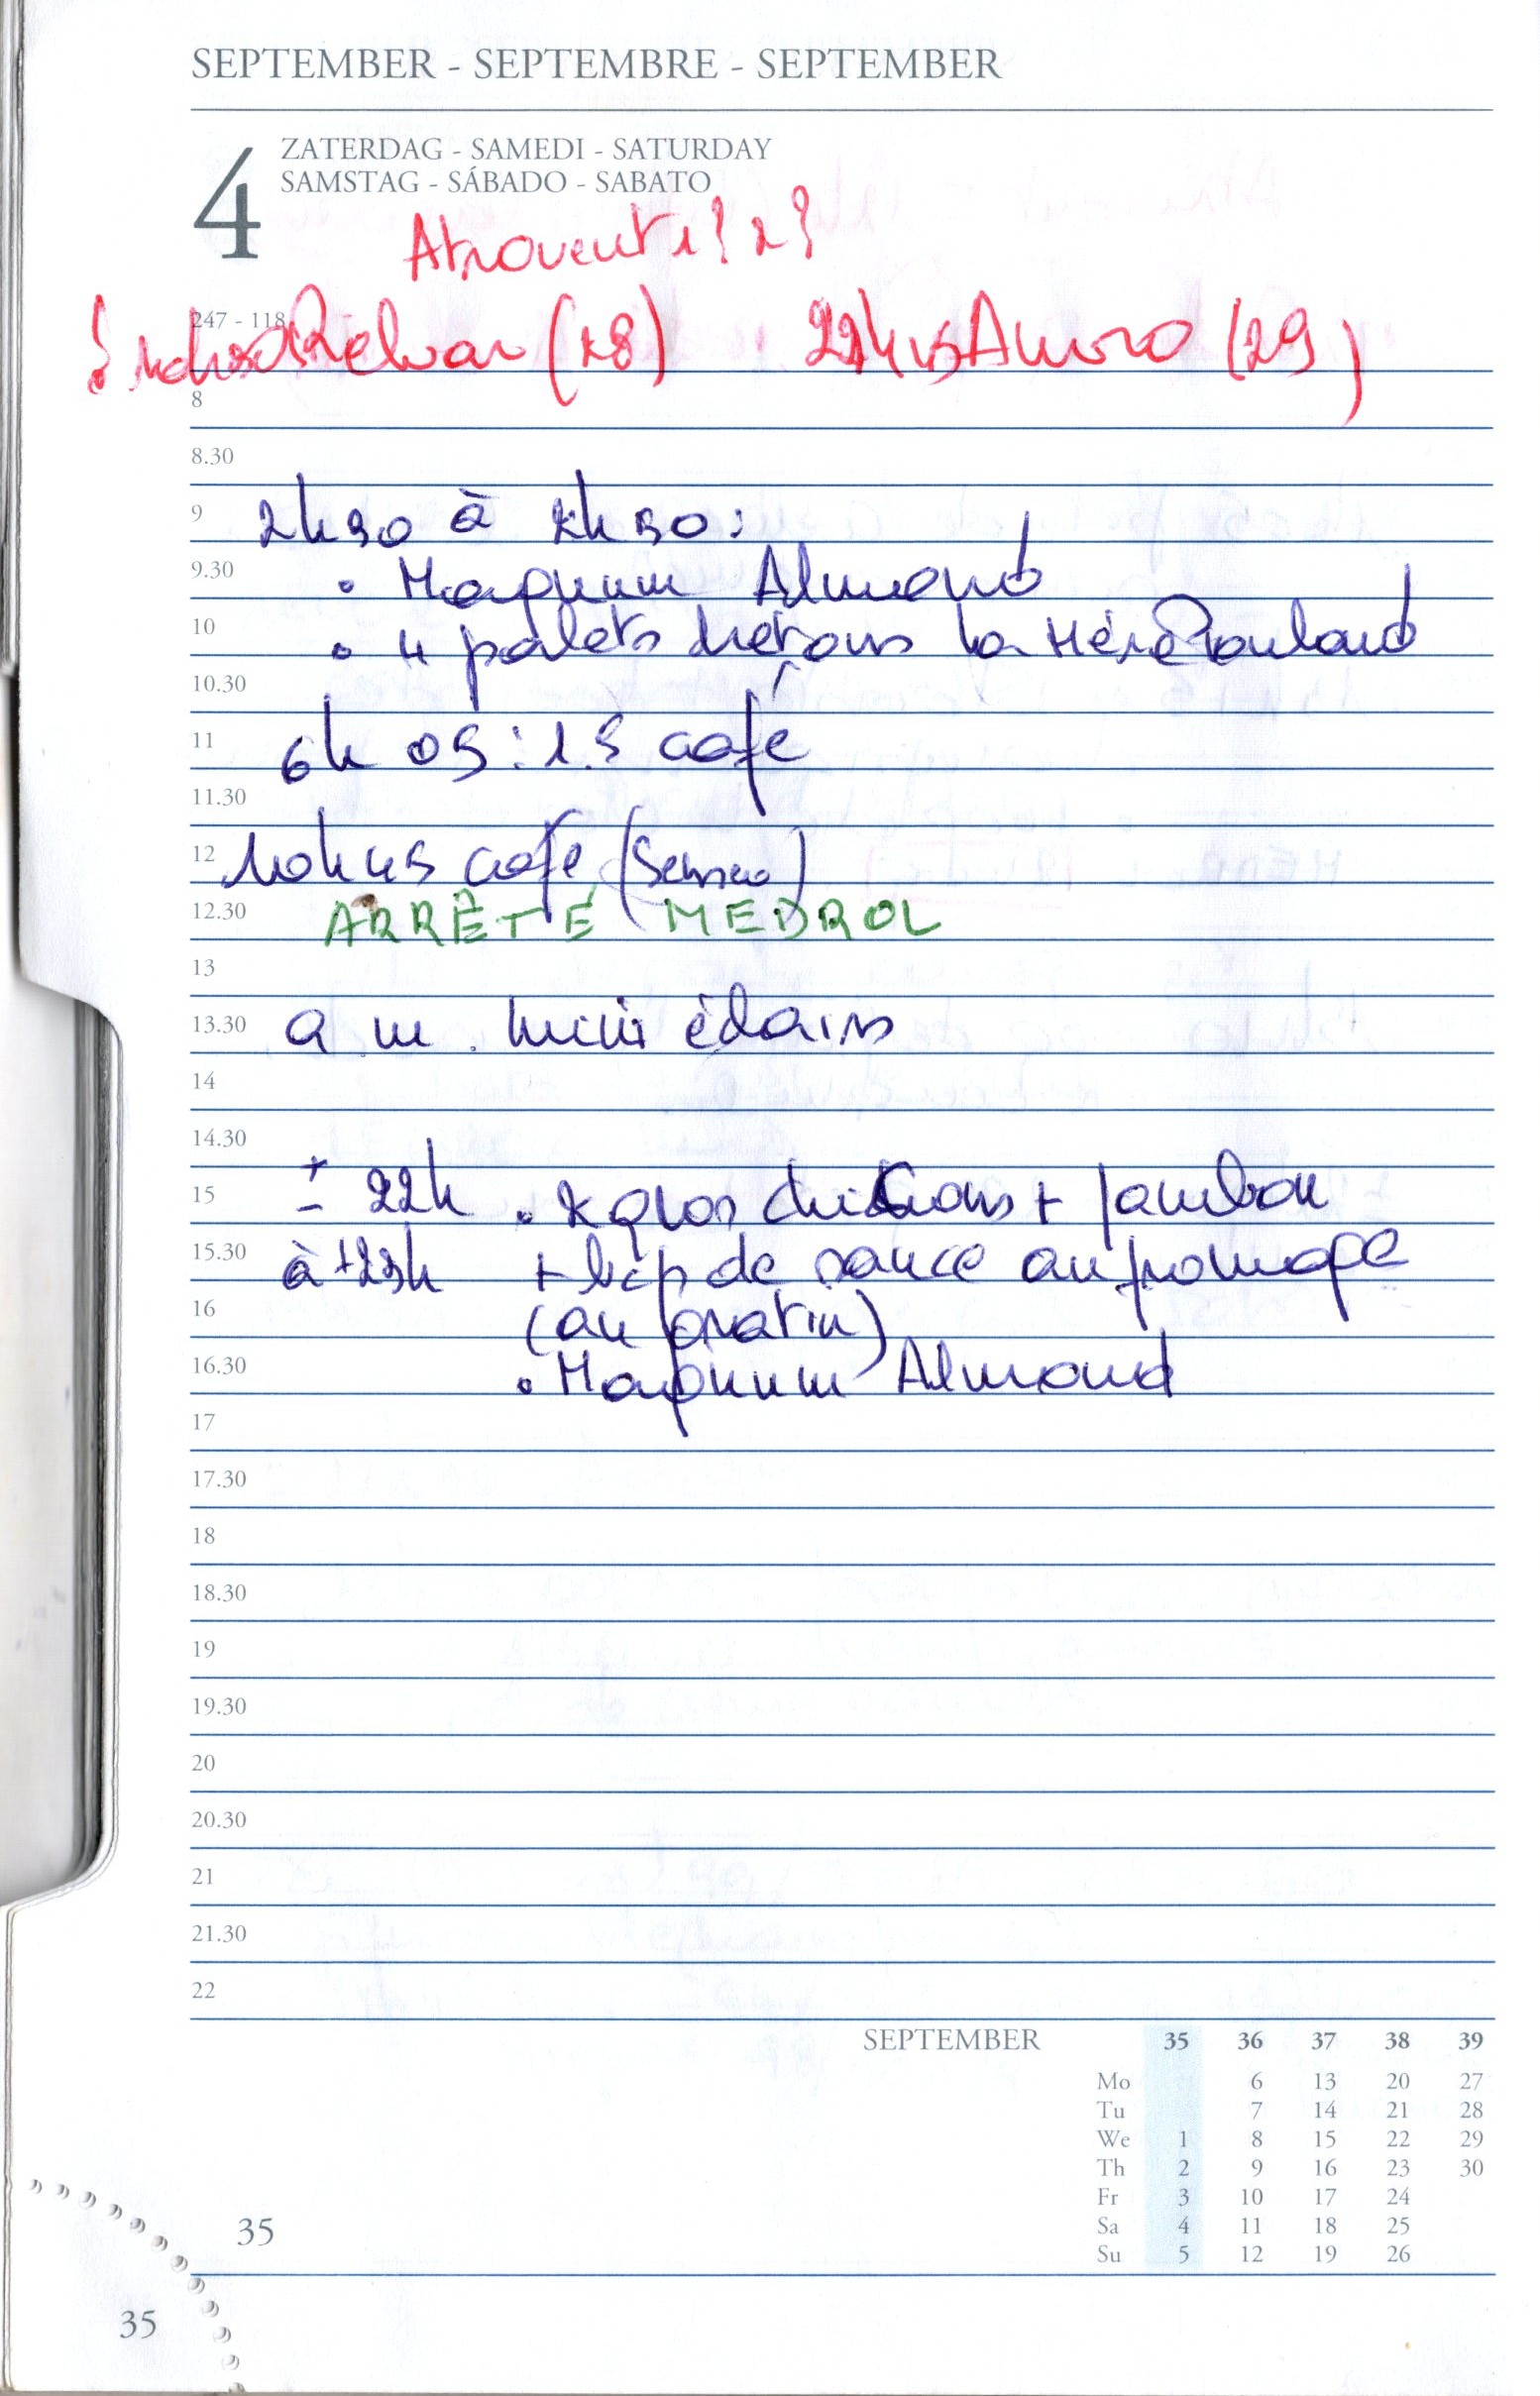 SEPTEMBER - SEPTEMBRE - SEPTEMBER
4
ZATERDAG - SAMEDI - SATURDAY
SAMSTAG - SÁBADO - SABATO
Atrovent 1? 2?
247 - 118
Relvar (28) 22h45 Amiro (29)
8
8.30
9 2h30 à 2h30:
9.30 • Magnum Almond
10 • 4 palets bretons la Mère Poulard
10.30
11 6h 05 : 1.5 café
11.30
12 10h45 café (Senseo)
12.30 ARRÊTÉ MEDROL
13
13.30 a.m. mini éclairs
14
14.30
15 ± 22h • 2 gros chicons + jambon
15.30 à ±23h + bcp de sauce au fromage
16 (au gratin)
16.30 • Magnum Almond
17
17.30
18
18.30
19
19.30
20
20.30
21
21.30
22
SEPTEMBER 35 36 37 38 39
Mo 6 13 20 27
Tu 7 14 21 28
We 1 8 15 22 29
Th 2 9 16 23 30
Fr 3 10 17 24
Sa 4 11 18 25
Su 5 12 19 26
35
35